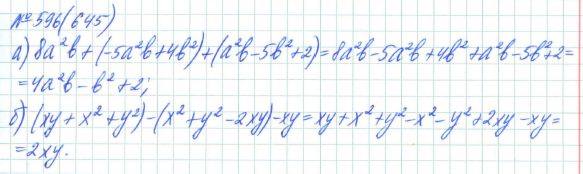 № 596(645)
а) 8a²b + (-5a²b+4b²)+(a²b-5b²+2)= 8a²b-5a²b+4b²+a²b-5b²+2=
=4a²b-b²+2;
б) (xy+x²+y²)-(x²+y²-2xy)-xy=xy+x²+y²-x²-y²+2xy-xy=
=2xy.